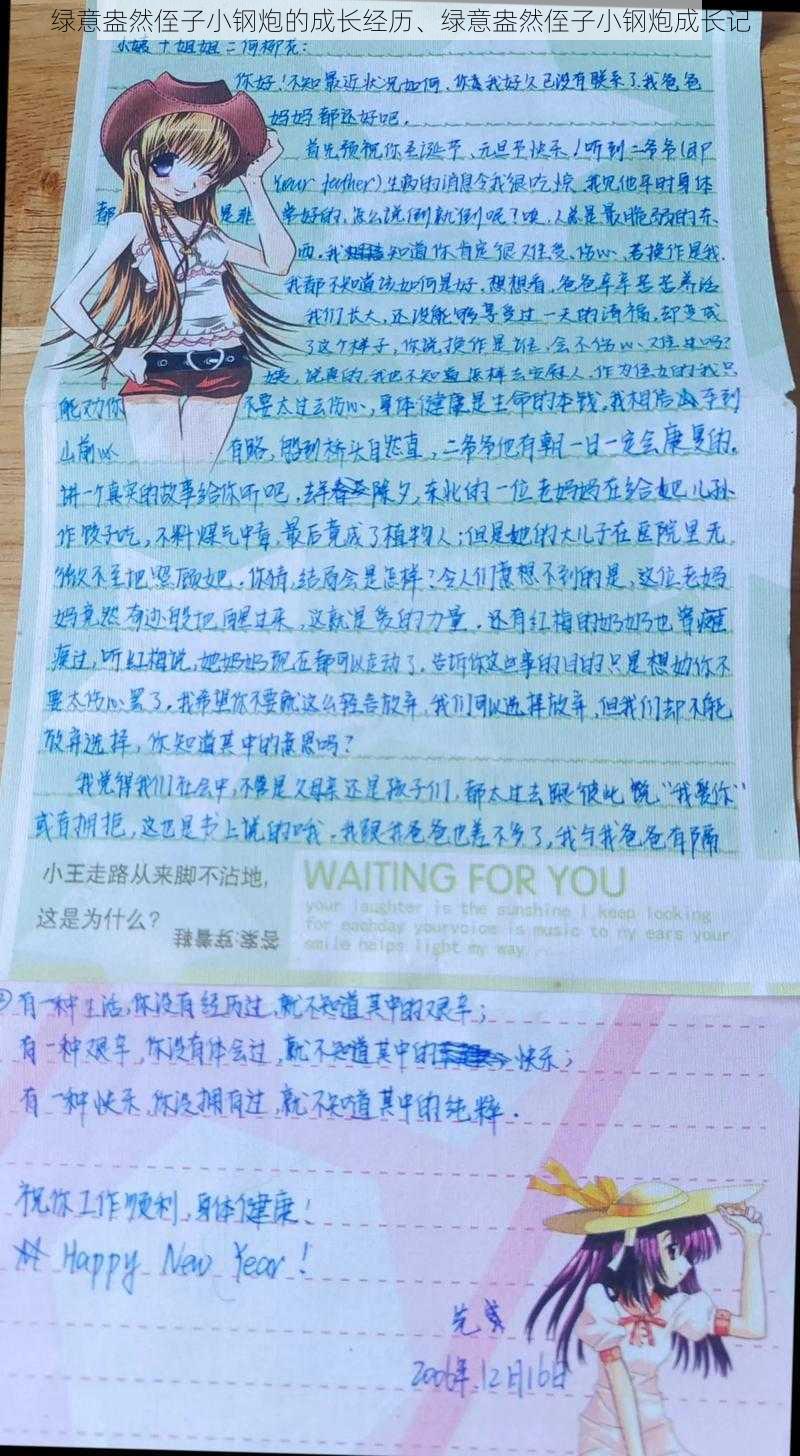 绿意盎然侄子小钢炮的成长经历、绿意盎然侄子小钢炮成长记
小姨十姐姐=何柳花:
你好!不知最近状况如何,你我好久已没有联系了,我爸爸
妈妈都还好吧。
首先预祝你圣诞节、元旦节快乐!听到二爷爷(即
Your father)生病的消息令我很吃惊,我见他平时身体
都是非常好的,怎么说倒就倒呢?唉,人总是最脆弱的东
西。我知道你肯定很难受、伤心,若换作是我,
我都不知道该如何是好,想想看,爸爸辛辛苦苦养活
我们长大,还没能够享受过一天的清福,却变成
了这个样子,你说换作是谁,会不伤心难过吗?
姨,说真的,我也不知道怎样去安慰人,作为侄女的我只
能劝你不要太过去伤心,身体健康是生命的本钱,我相信车到
山前必有路,船到桥头自然直,二爷爷他有朝一日一定会康复的。
讲一个真实的故事给你听吧,去年除夕,东北的一位老妈妈在给她儿孙
作饺子吃,不料煤气中毒,最后竟成了植物人;但是她的大儿子在医院里无
微不至地照顾她,你猜,结局会是怎样?令人们意想不到的是,这位老妈
妈竟然奇迹般地醒过来,这就是爱的力量,还有红梅的奶奶也曾瘫
痪过,听红梅说,她奶奶现在都可以走动了,告诉你这些事的目的只是想劝你不
要太伤心罢了,我希望你不要就这么轻言放弃,我们可以选择放弃,但我们却不能
放弃选择,你知道其中的意思吗?
我觉得我们社会中,不管是父母亲还是孩子们,都太过去跟彼此说“我爱你”
或有拥抱,这也是书上说的哦,我跟我爸爸也差不多了,我与我爸爸有隔
小王走路从来脚不沾地,
这是为什么?
WAITING FOR YOU
your laughter is the sunshine I keep looking
for eachday yourvoice is music to my ears your
smile helps light my way
有一种生活,你没有经历过,就不知道其中的艰辛;
有一种艰辛,你没有体会过,就不知道其中的快乐;
有一种快乐,你没拥有过,就不知道其中的纯粹.
祝你工作顺利,身体健康!
Happy New Year!
2006年12月16日